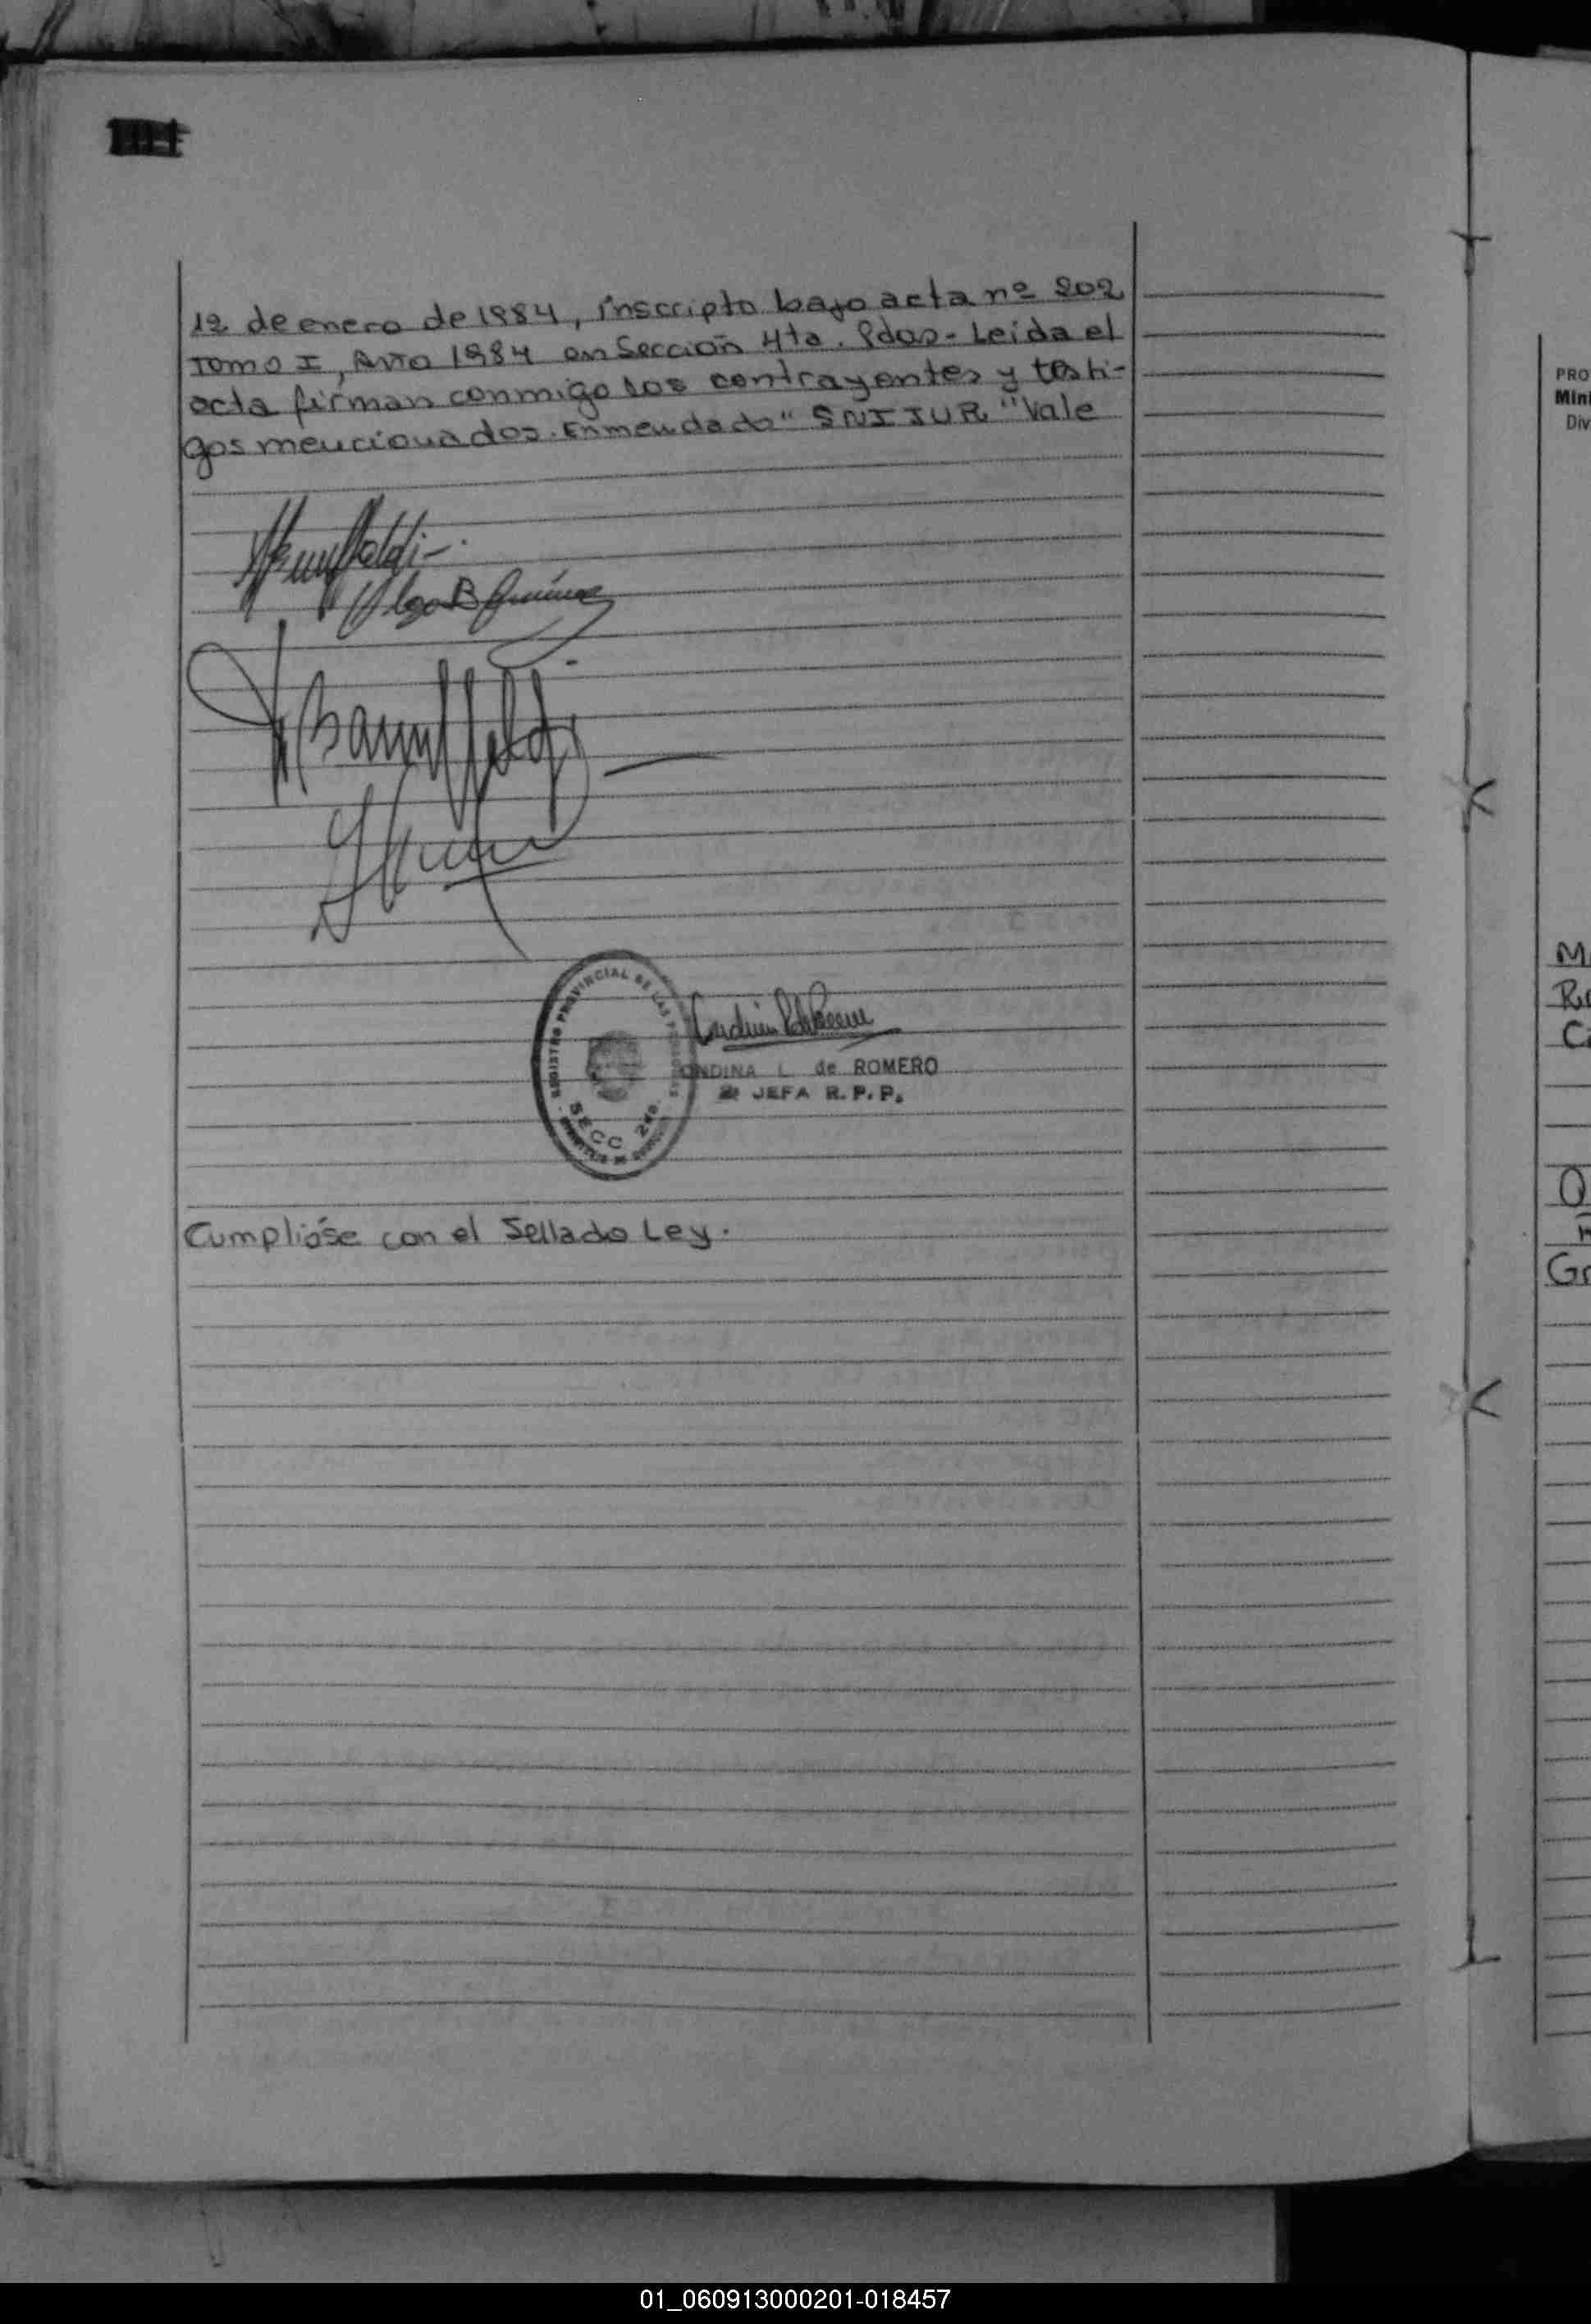 12 de enero de 1984, inscripto bajo acta nº 202
Tomo I, Año 1984 en Sección 4ta. Pdos- Leida el
acta firman conmigo los contrayentes y testi-
gos mencionados. Enmendado "SNIJUR" Vale
Olga B
REGISTRO PROVINCIAL DE LAS PERSONAS
SECC 2da.
ONDINA L. de ROMERO
JEFA R.P.P.
Cumplióse con el Sellado Ley.
PRO
Mini
Div
M
C
O
Gr
01_060913000201-018457